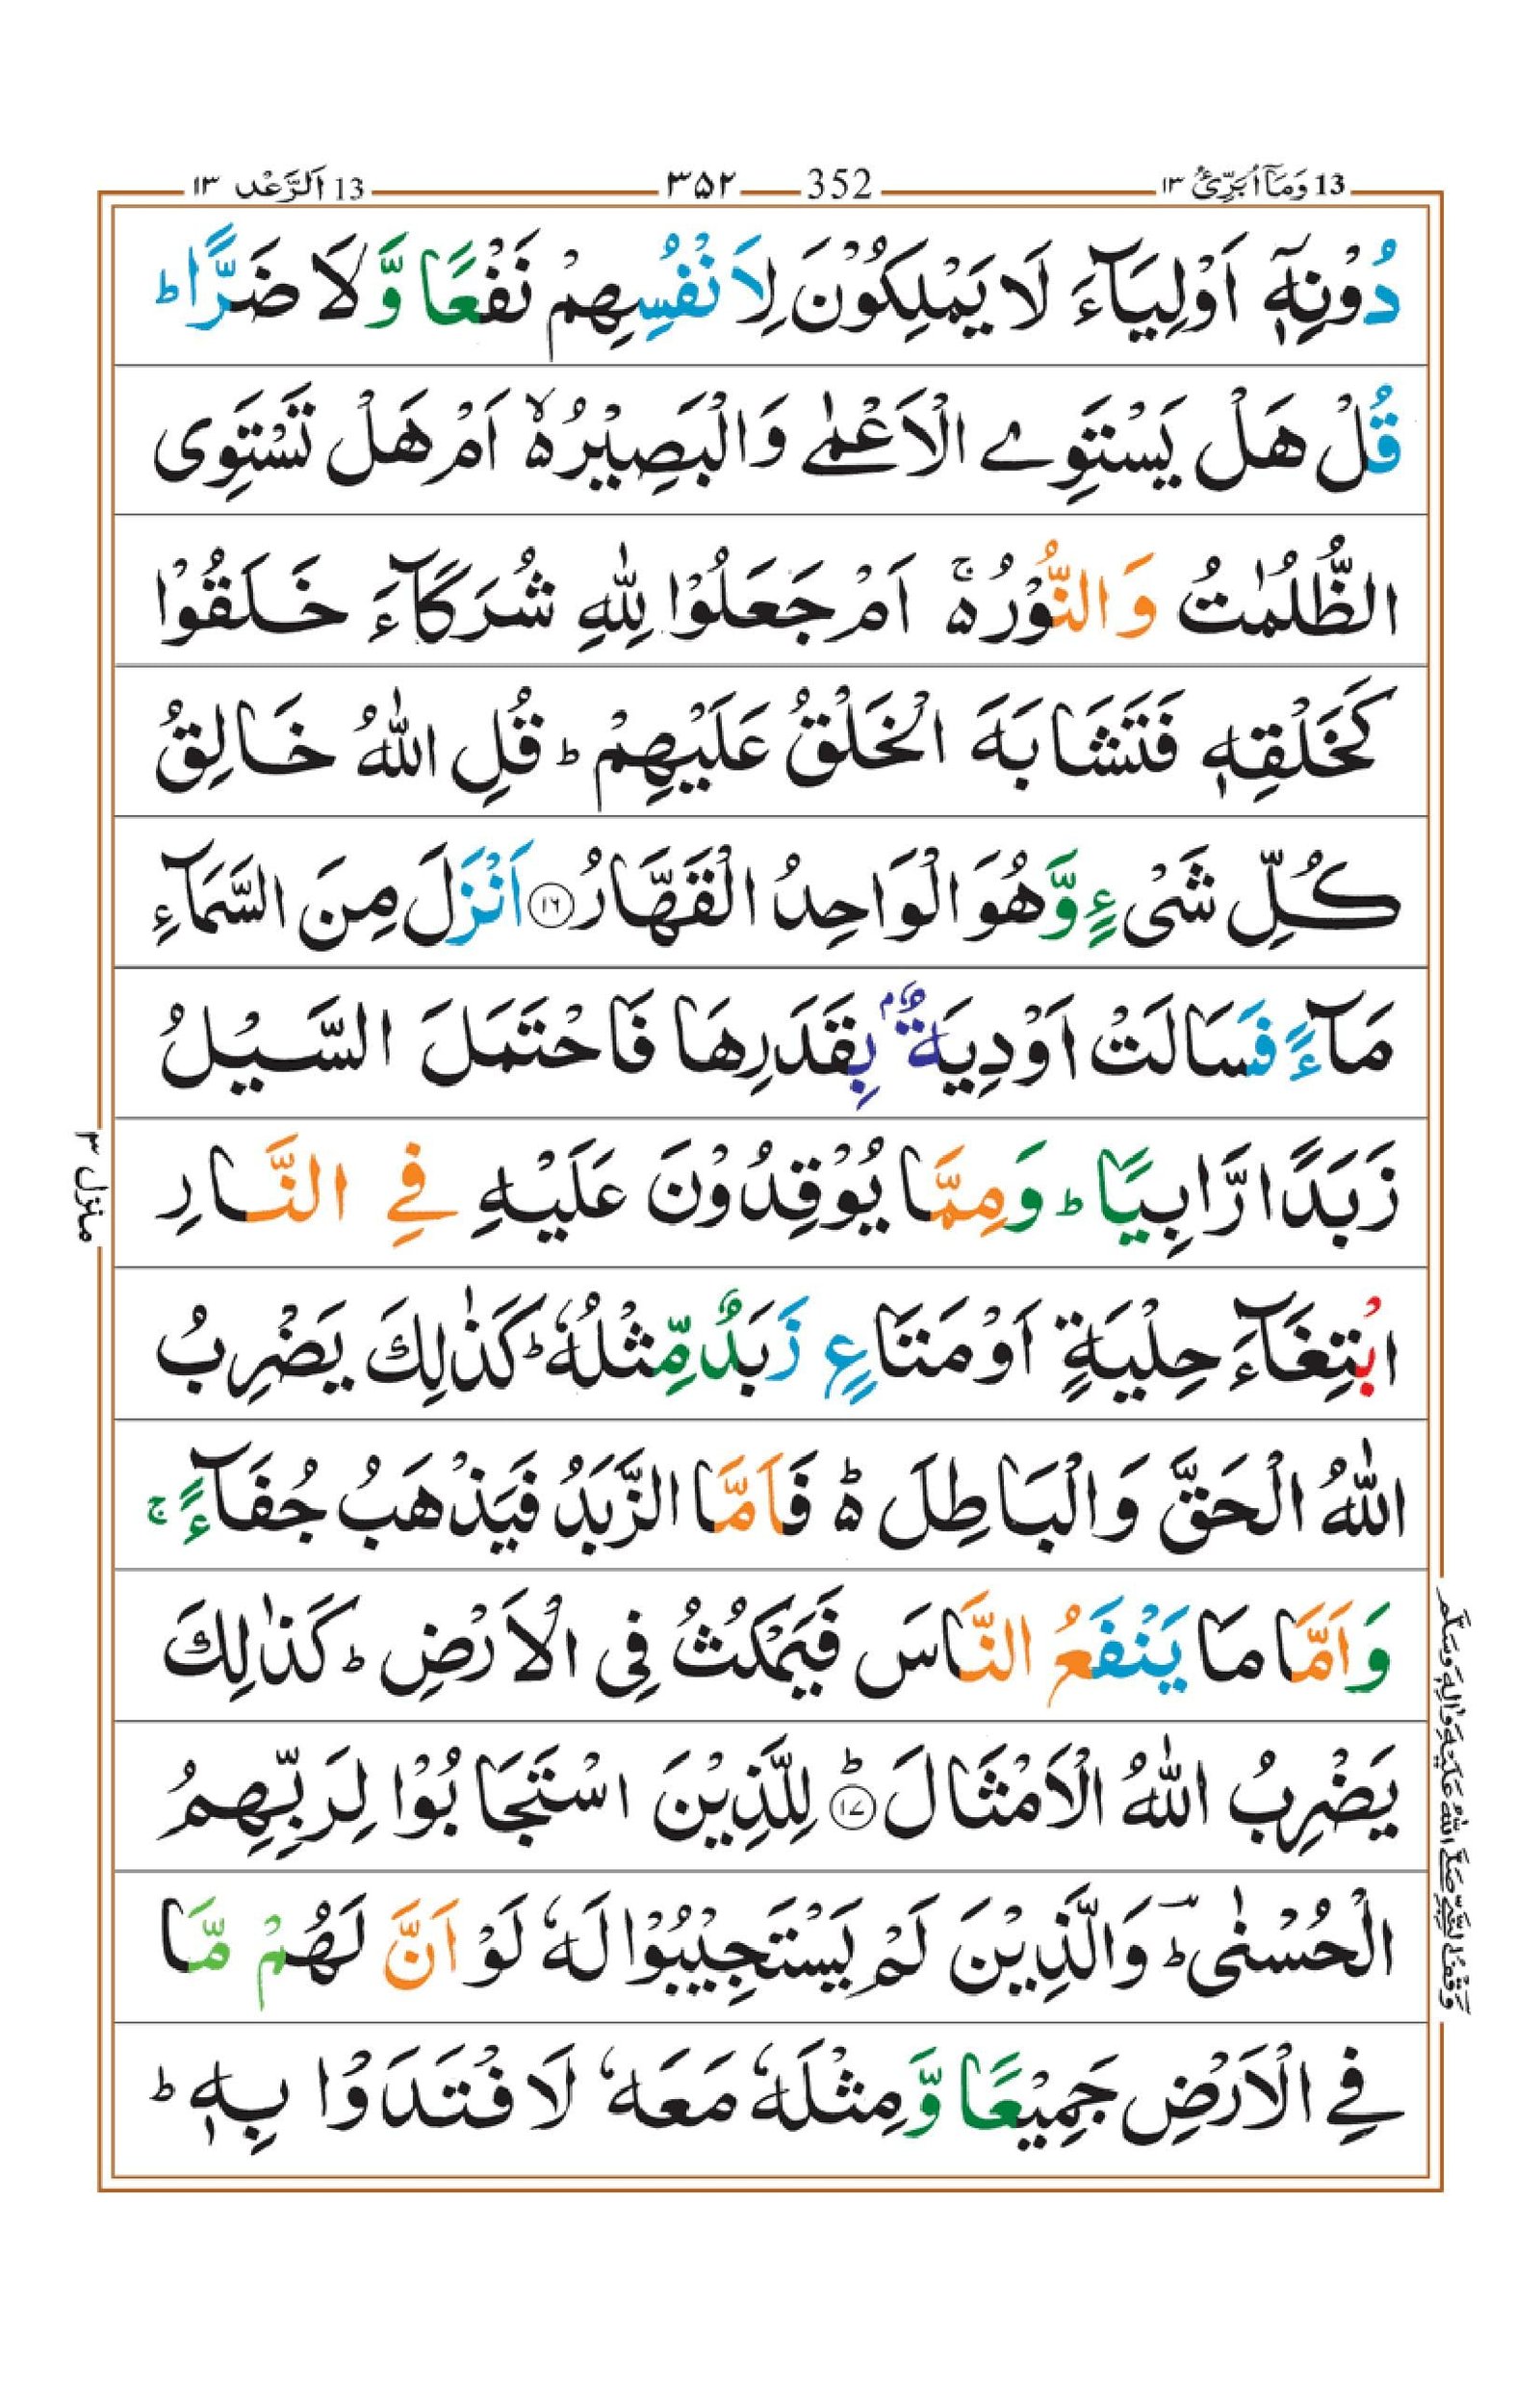 13 وَمَاۤ اُبَرِّئُ ١٣ 352 ٣٥٢ 13 اَلرَّعْد ١٣
دُوْنِهٖۤ اَوْلِيَآءَ لَا يَمْلِكُوْنَ لِاَنْفُسِهِمْ نَفْعًا وَّلَا ضَرًّا ؕ
قُلْ هَلْ يَسْتَوِے الْاَعْمٰى وَالْبَصِيْرُ ۙ۬ اَمْ هَلْ تَسْتَوِى
الظُّلُمٰتُ وَالنُّوْرُ ۚ۬ اَمْ جَعَلُوْا لِلّٰهِ شُرَكَآءَ خَلَقُوْا
كَخَلْقِهٖ فَتَشَابَهَ الْخَلْقُ عَلَيْهِمْ ؕ قُلِ اللّٰهُ خَالِقُ
كُلِّ شَىْءٍ وَّهُوَ الْوَاحِدُ الْقَهَّارُ ١٦ اَنْزَلَ مِنَ السَّمَآءِ
مَآءً فَسَالَتْ اَوْدِيَةٌۢ بِقَدَرِهَا فَاحْتَمَلَ السَّيْلُ
زَبَدًا رَّابِيًا ؕ وَمِمَّا يُوْقِدُوْنَ عَلَيْهِ فِے النَّارِ
ابْتِغَآءَ حِلْيَةٍ اَوْ مَتَاعٍ زَبَدٌ مِّثْلُهٗ ؕ كَذٰلِكَ يَضْرِبُ
اللّٰهُ الْحَقَّ وَالْبَاطِلَ ؕ۬ فَاَمَّا الزَّبَدُ فَيَذْهَبُ جُفَآءً ۚ
وَاَمَّا مَا يَنْفَعُ النَّاسَ فَيَمْكُثُ فِى الْاَرْضِ ؕ كَذٰلِكَ
يَضْرِبُ اللّٰهُ الْاَمْثَالَ ؕ ١٧ لِلَّذِيْنَ اسْتَجَابُوْا لِرَبِّهِمُ
الْحُسْنٰى ؕؔ وَالَّذِيْنَ لَمْ يَسْتَجِيْبُوْا لَهٗ لَوْ اَنَّ لَهُمْ مَّا
فِے الْاَرْضِ جَمِيْعًا وَّمِثْلَهٗ مَعَهٗ لَافْتَدَوْا بِهٖ ؕ
منزل ٣
وَقْفُ النَّبِيِّ صَلَّى اللّٰهُ عَلَيْهِ وَاٰلِهٖ وَسَلَّم